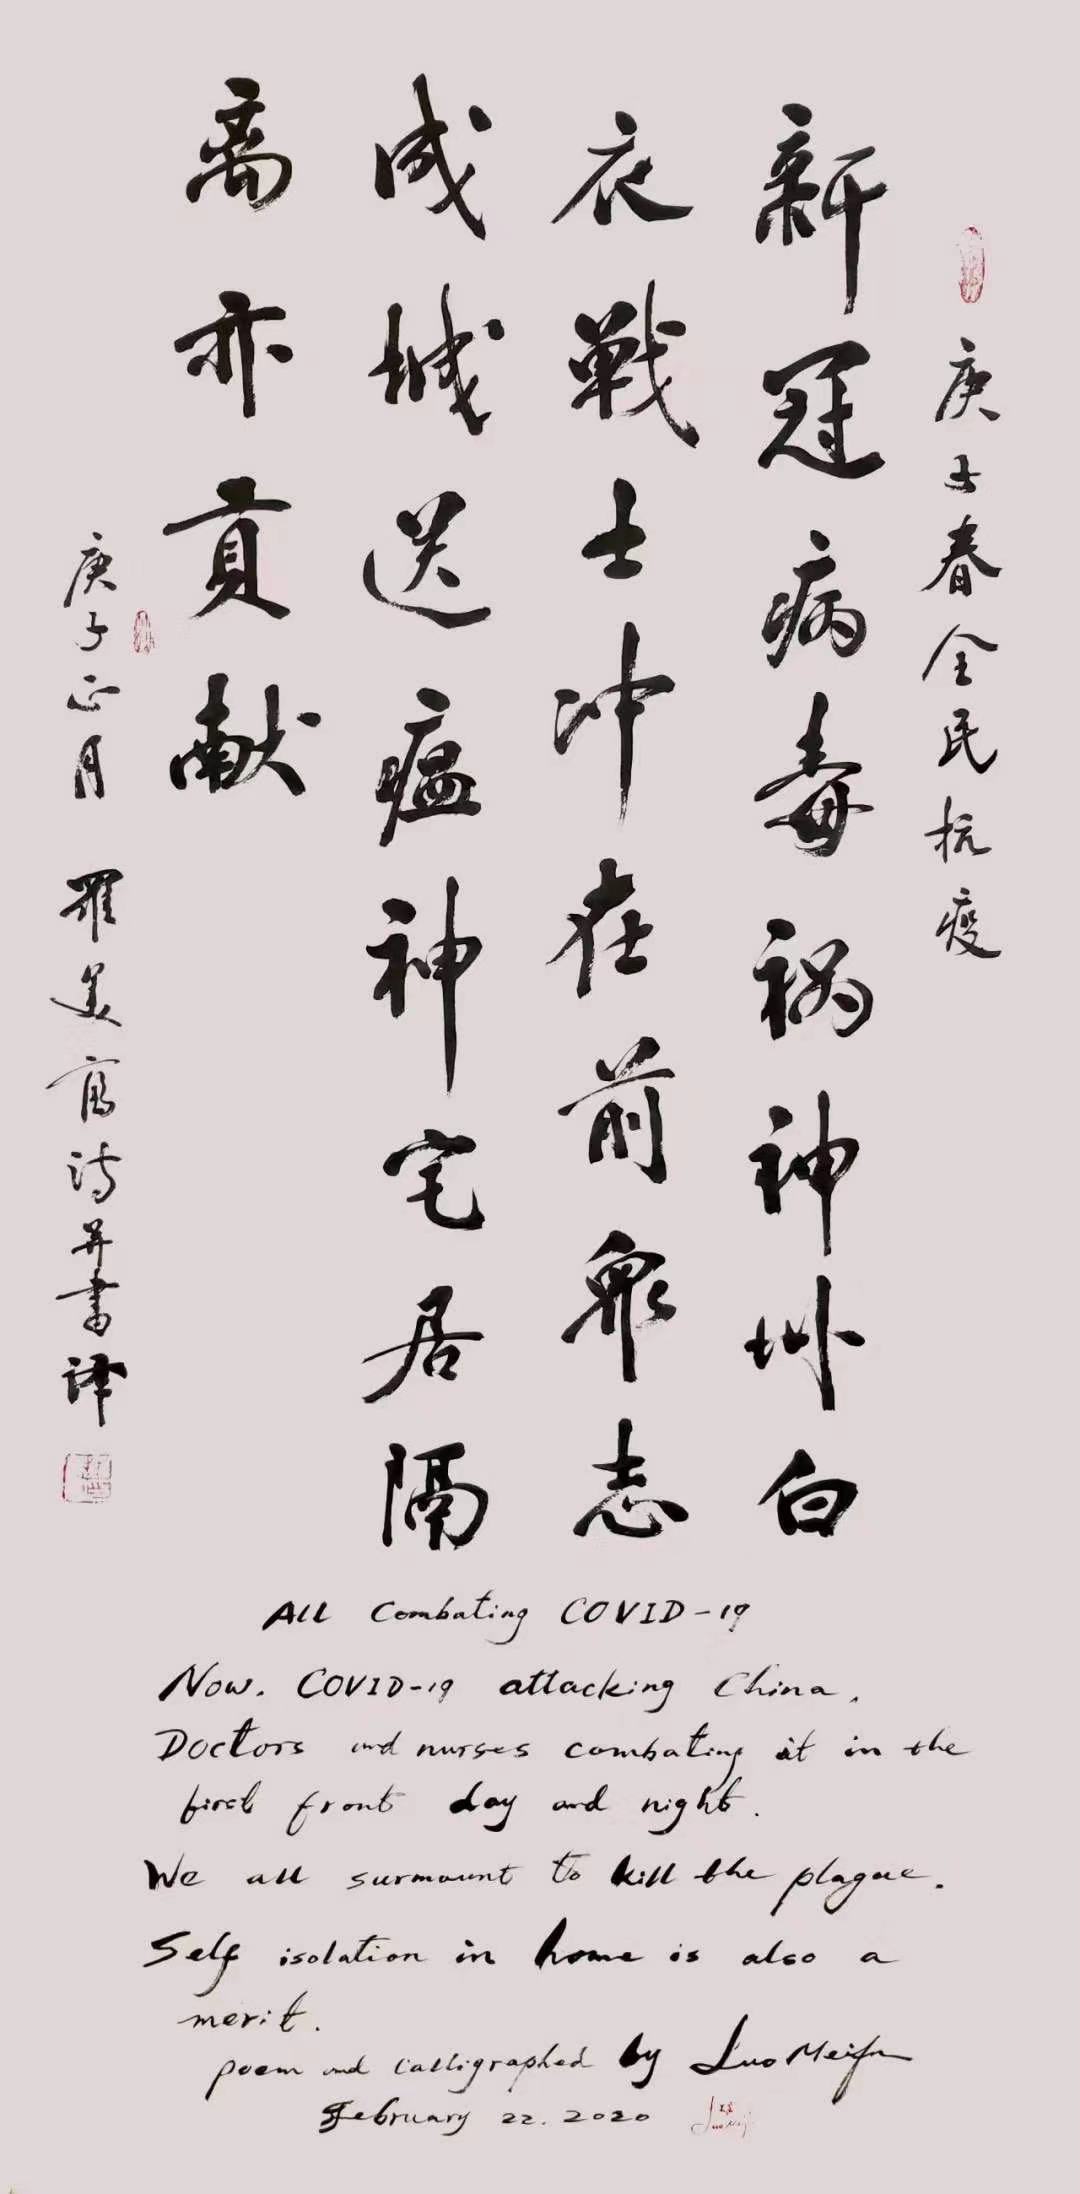 庚子春全民抗疫
新冠病毒祸神州白
衣戰士冲在前衆志
成城送瘟神宅居隔
离亦貢献
庚子正月 羅美富诗并書译
All Combating COVID-19
Now. COVID-19 attacking China.
Doctors and nurses combating it in the
first front day and night.
We all surmount to kill the plague.
Self isolation in home is also a
merit.
poem and calligraphed by Luo Meifu
February 22. 2020